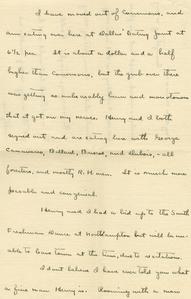 I have moved out of Commons, and
am eating now at Dallis' Eating Joint at
6½ per. It is about a dollar and a half
higher than Commons, but the grub over there
was getting so miserably bum and monotonous
that it got on my nerves. Henry and I both
signed out and are eating here with George
Cummins, Billard, Barnes, and Dubois, - all
fourties, and mostly R. H. men. It is much more
possible and congenial.
Henry and I had a bid up to the Smith
Freshman Dance at Northampton but will be un-
able to leave town at the time, due to recitations.
I don't believe I have ever told you what
a fine man Henry is. Rooming with a man